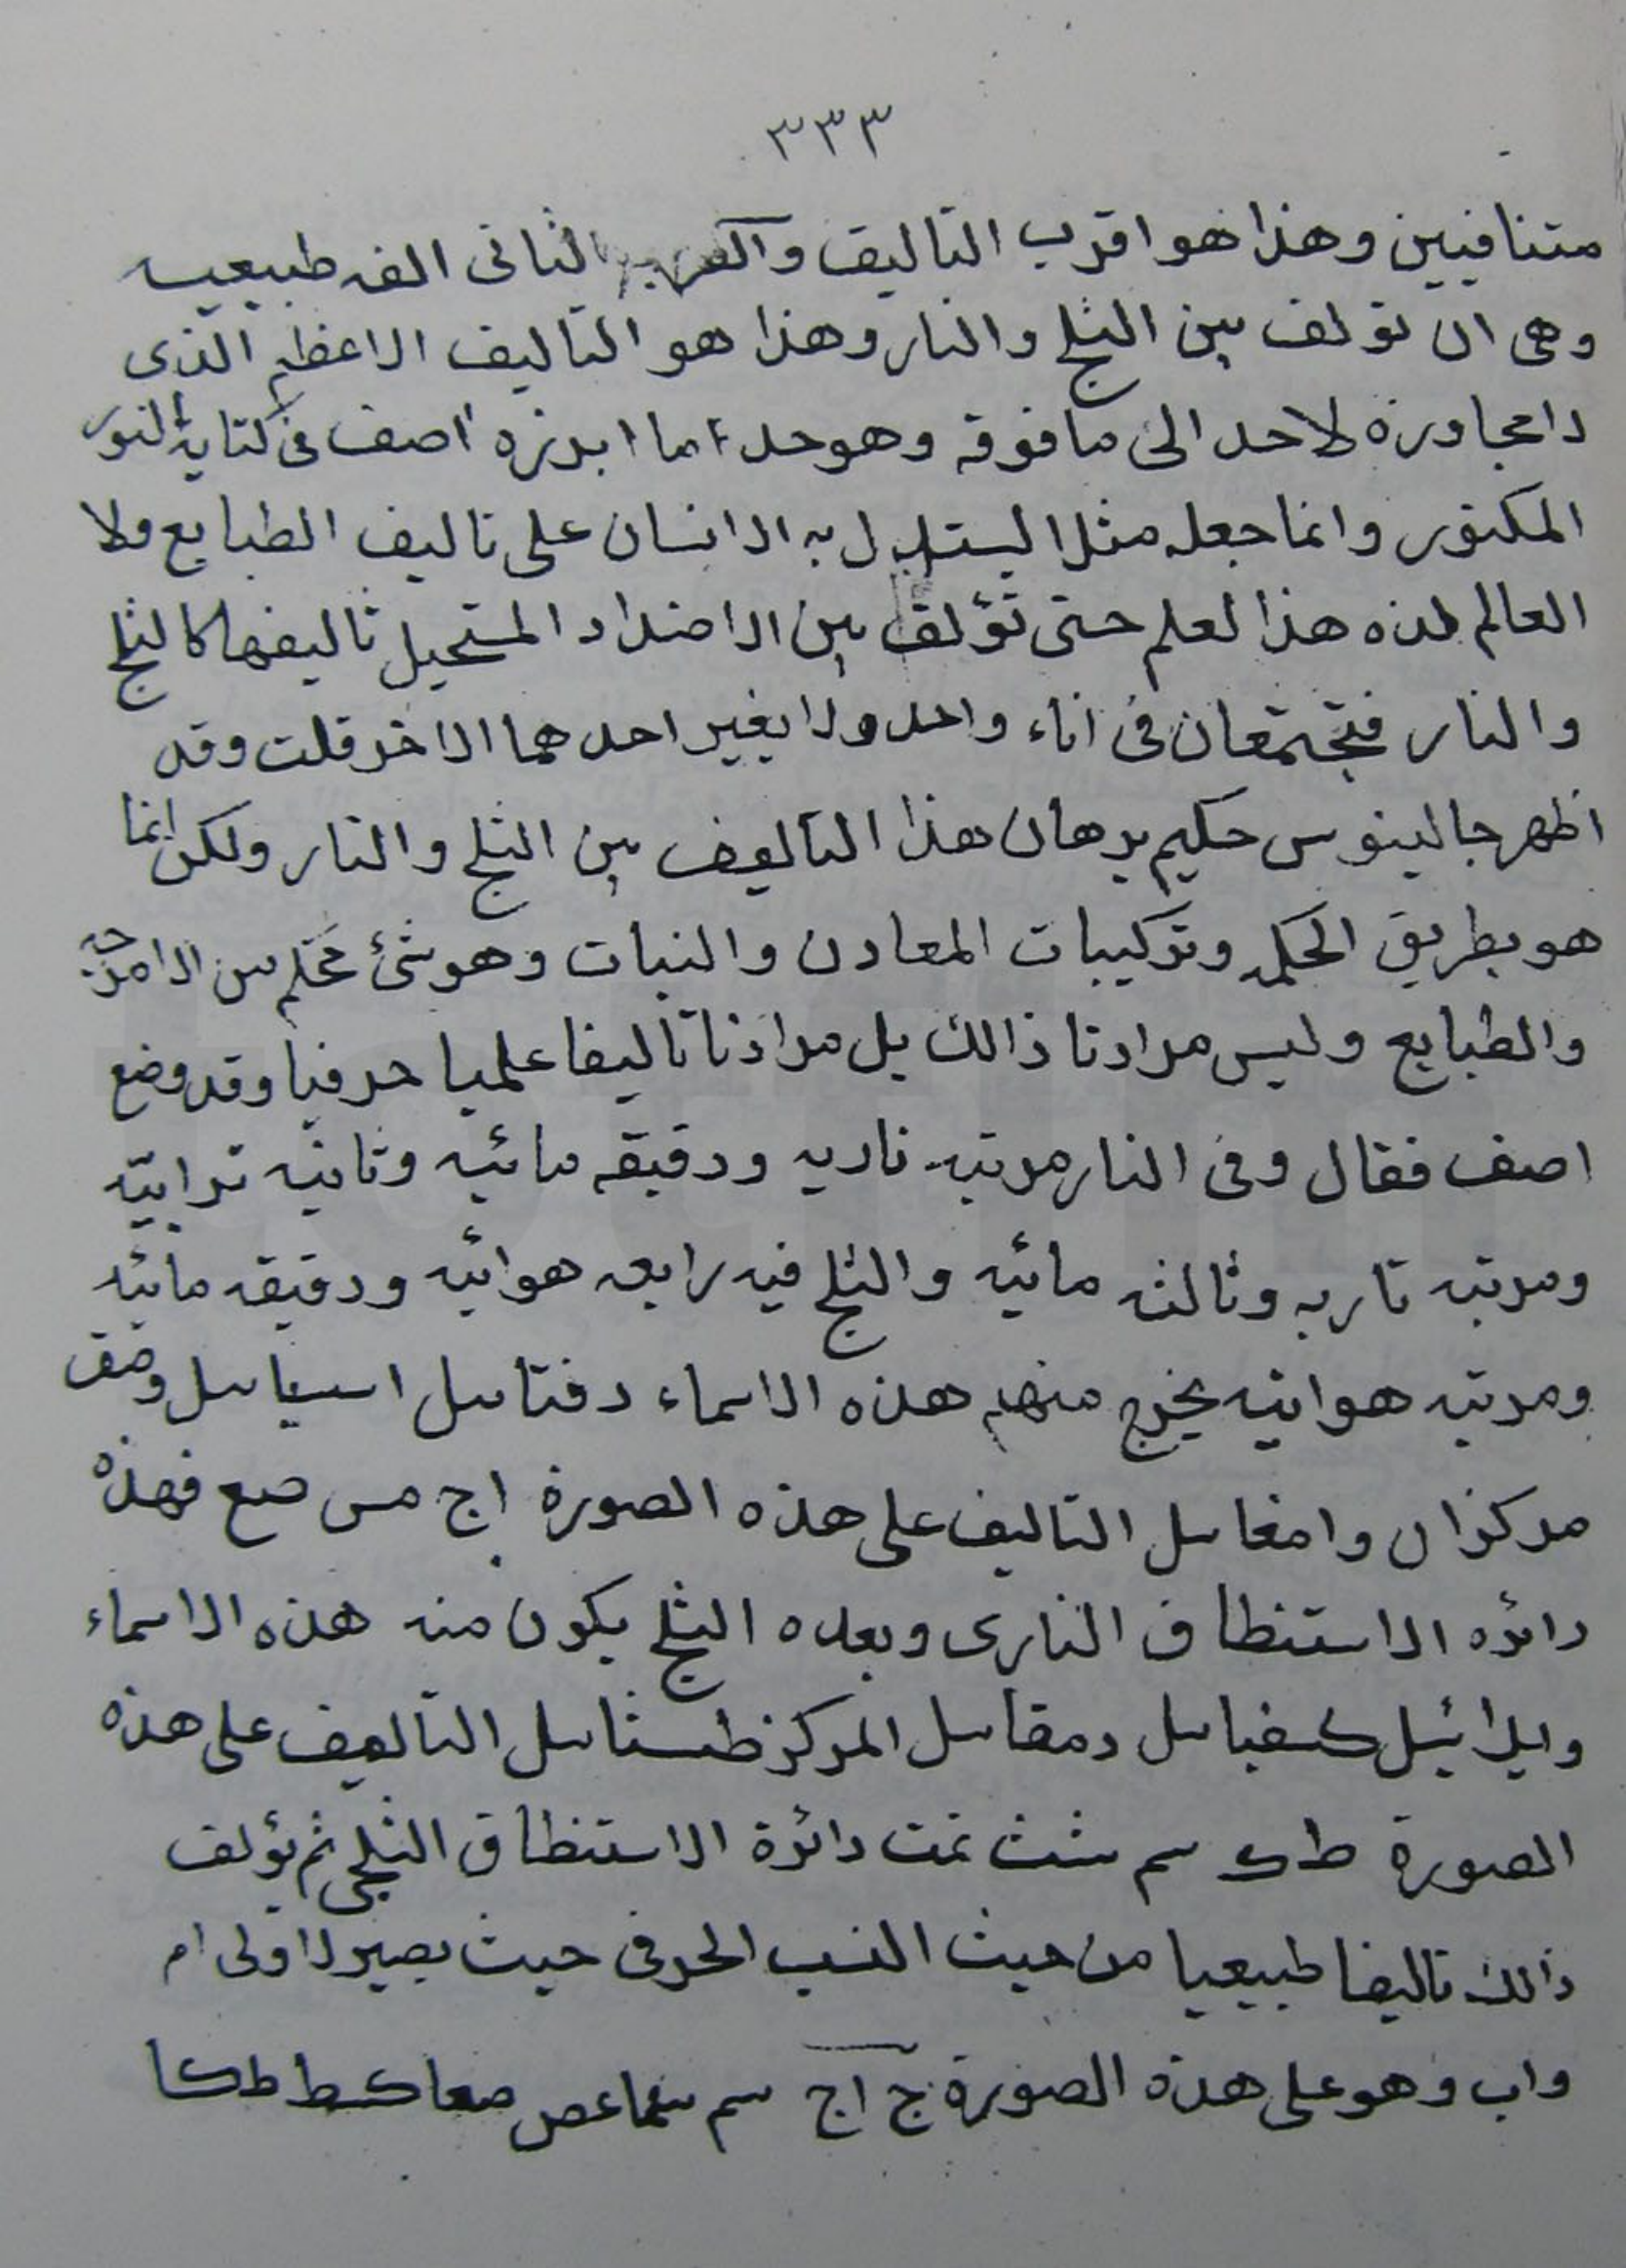 ٣٣٣
متنافيين وهذا هو اقرب التاليف الثانى الفه طبيعيه
وهى ان تولف بين الثلج والنار وهذا هو التاليف الاعظم الذى
لامجاوزة لاحد الى ما فوقه وهو حد ما ابرزه اصف فى كتابه النور
المكنون وانما جعله مثلا ليستدل به الانسان على تاليف الطبايع ولا
العالم لهذه هذا لعلم حتى تؤلف بين الاضداد المستحيل تاليفها كالثلج
والنار فتجتمعان فى اناء واحد ولا يغير احدهما الاخر قلت وقد
اظهر جالينوس حكيم برهان هذا التاليف بين الثلج والنار ولكن انما
هو بطريق الحكمه وتركيبات المعادن والنبات وهو شئ من الامزجه
والطبايع وليس مرادنا ذالك بل مرادنا تاليفا علميا حرفيا وقد وضع
اصف فقال وفى النار مرتبه ناريه ودقيقه مائيه وثانيه ترابيه
ومرتبه ناريه وثالثه مائيه والثلج فيه رابعه هوائيه ودقيقه مائيه
ومرتبه هوائيه يخرج منهم هذه الاسماء دفتاىىل اسىىاىىل
مركزان وامغاىىل التاليف على هذه الصورة اج مس صع فهذه
دائره الاستنطاق النارى وبعده الثلج يكون منه هذه الاسماء
وايلرائيل كفياىىل دمقاىىل المركز طسثاىىل التاليف على هذه
الصورة طك سم شث تمت دائرة الاستنطاق الثلجى ثم يؤلف
ذالك تاليفا طبيعيا من حيث النسب الحرفى حيث يصير لاولى ام
واب وهو على هذه الصورة ج اج سم صعا كط طكا